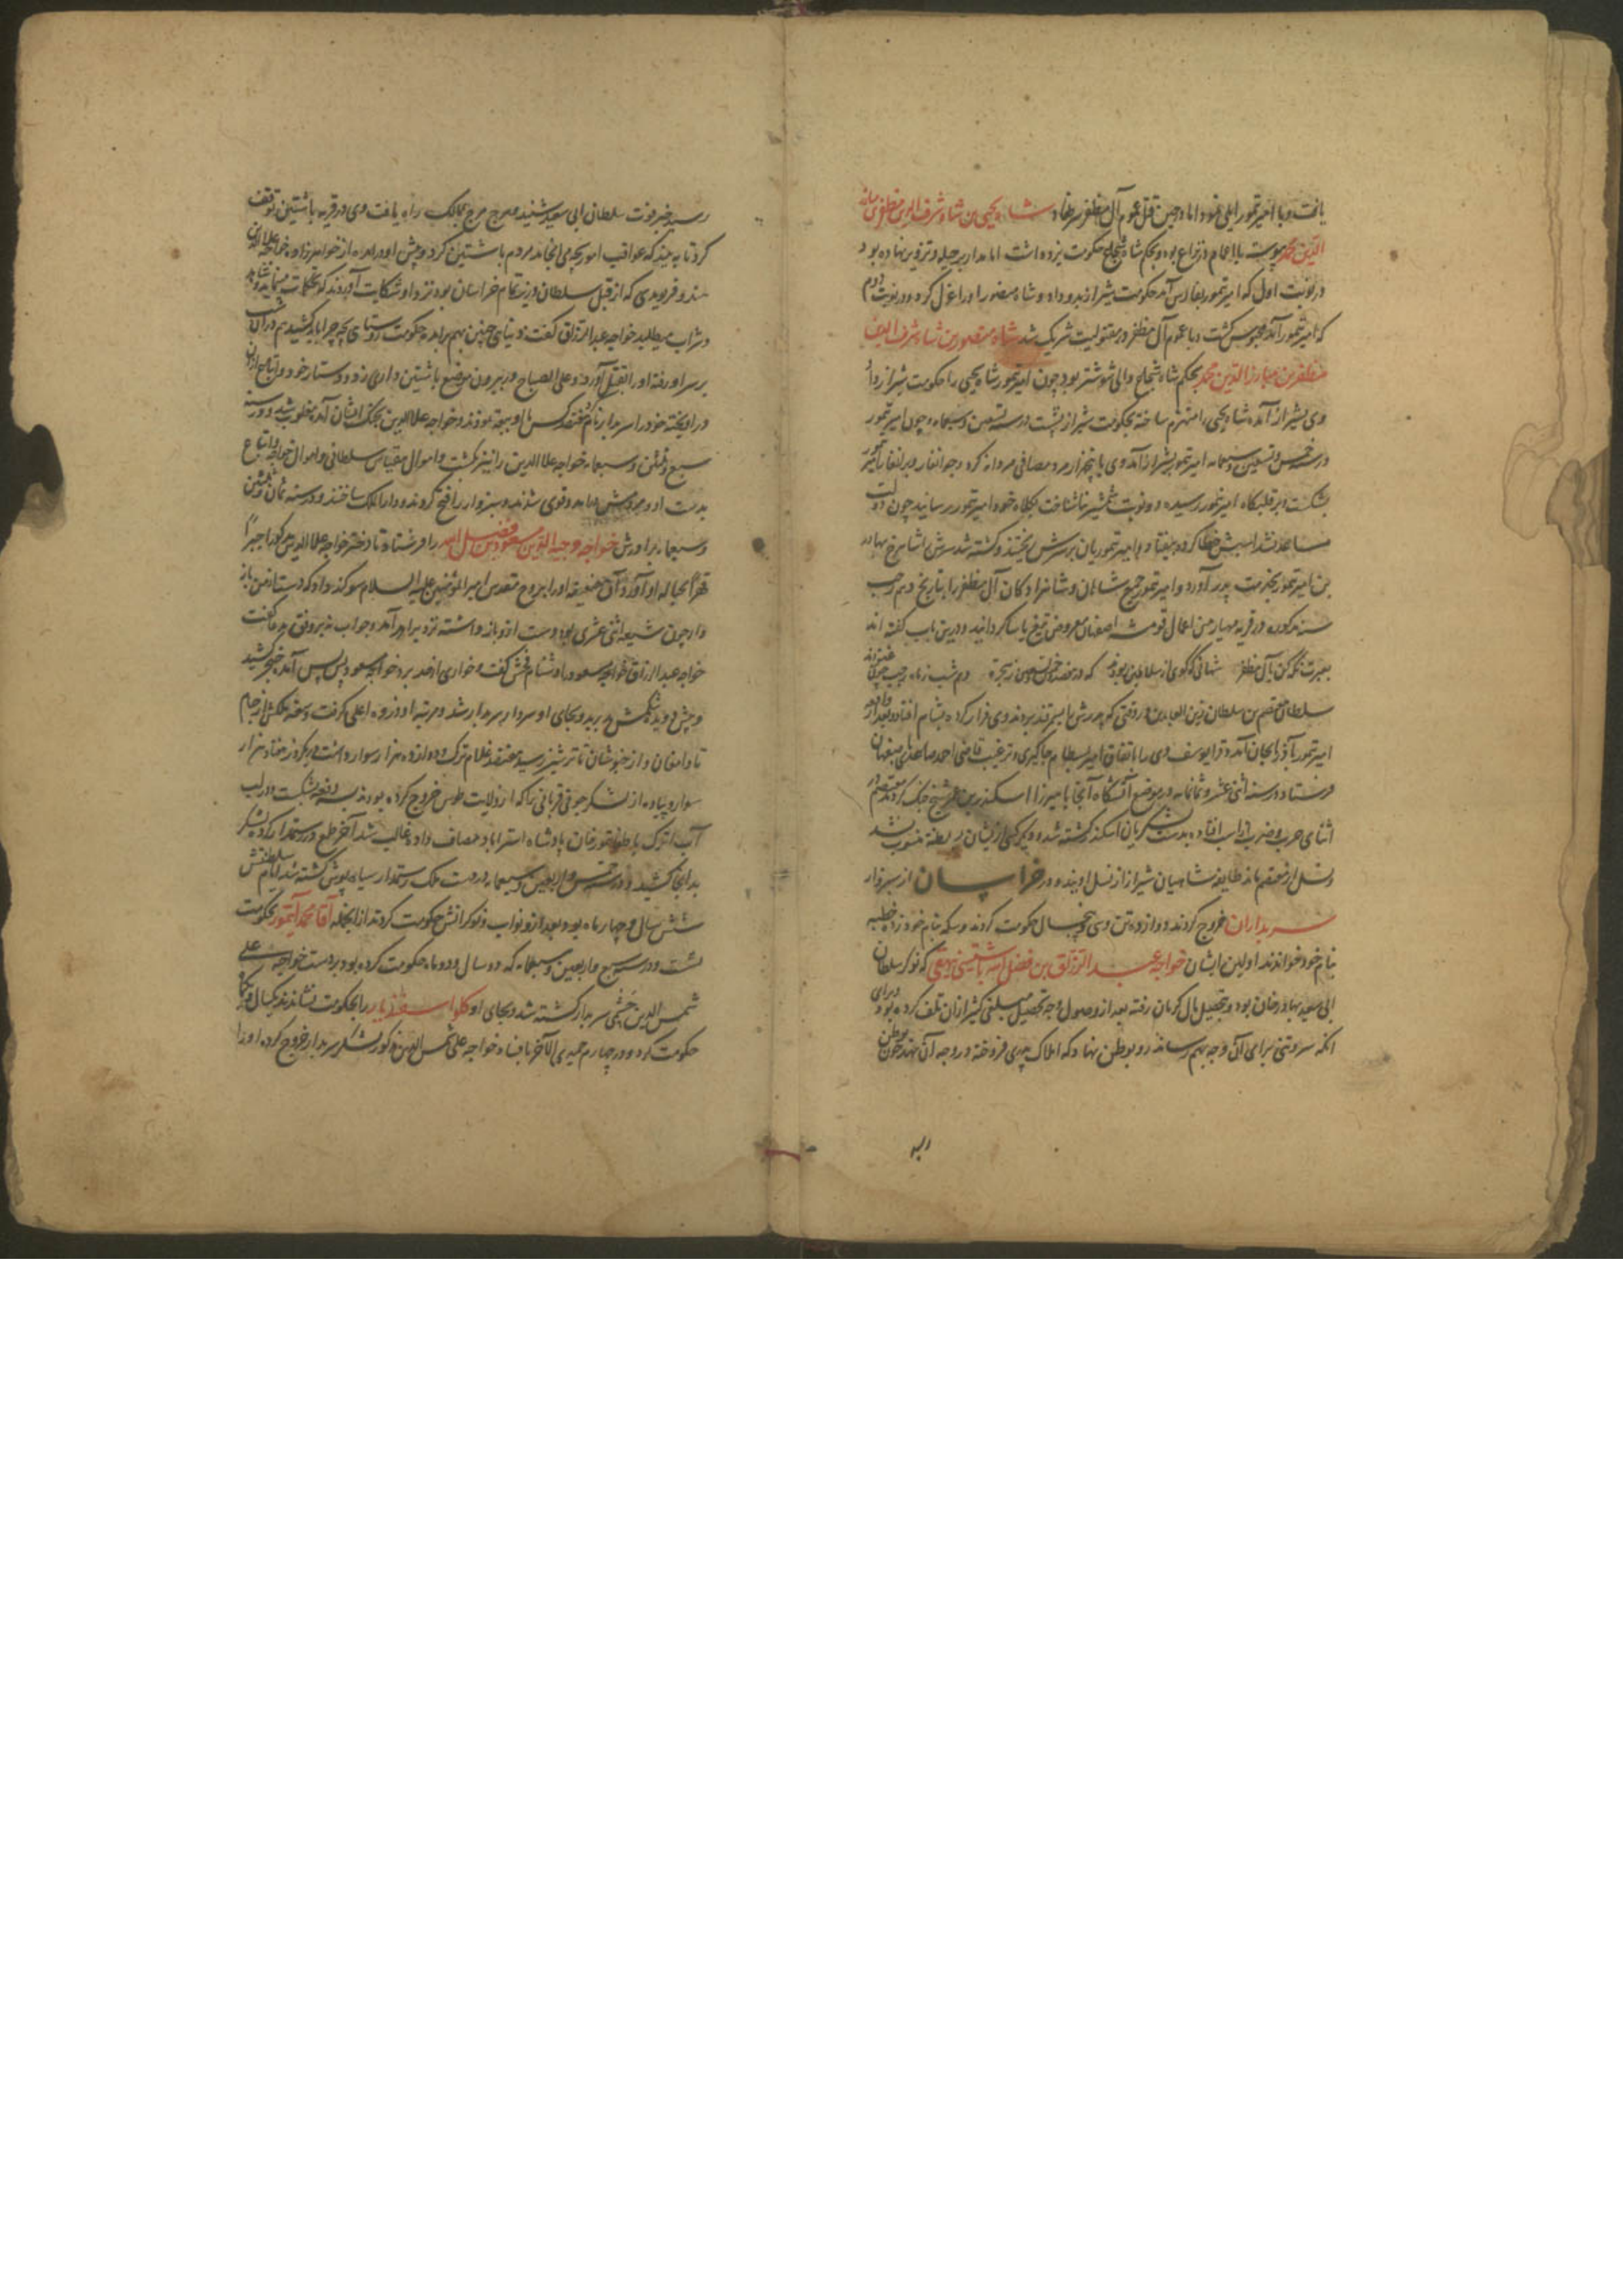 یافت و با امیر تیمور ایلی نمود اما در حین قتل عموم آل مظفر سر نهاد شاه یحیی بن شاه شرف الدین مظفر بن مبارز
الدین محمد پیوسته با اعمام در نزاع بود و بحکم شاه شجاع حکومت یزد داشت اما مدار بر حیله و تزویر نهاده بود
در نوبت اول که امیر تیمور بفارس آمد حکومت شیراز بدو داد و شاه منصور او را عزل کرد و در نوبت دوم
که امیر تیمور آمد محبوس گشت و با عموم آل مظفر در مقتولیت شریک شد شاه منصور بن شاه شرف الدین
مظفر بن مبارز الدین محمد بحکم شاه شجاع والی شوشتر بود چون امیر تیمور شاه یحیی را حکومت شیراز داد
وی بشیراز آمده شاه یحیی را منهزم ساخته بحکومت شیراز نشست در سنه تسعین و سبعمایه و چون امیر تیمور
در سنه خمس و تسعین و سبعمایه امیر تیمور بشیراز آمد وی با پنجهزار مرد مصافی مردانه کرد و جوانغار و برانغار امیر تیمور
بشکست و بر قلبگاه امیر تیمور رسیده دو نوبت شمشیر ناشناخت بکلاه خود امیر تیمور رسانید چون دولت
مساعد نشد اسبش خطا کرده بیفتاد و امیر تیموریان بر سرش ریختند و کشته شد سرش را شاهرخ بهادر
بن امیر تیمور بخدمت پدر آورد و امیر تیمور جمیع شاهان و شاهزادگان آل مظفر را بتاریخ دهم رجب
سنه مذکوره در قریه مهیار من اعمال قومشه اصفهان معروض تیغ یاسا گردانید و درین باب گفته اند
بعبرت نگه کن بآل مظفر شهانی که گوی از سلاطین ربودند که در هفصد و خمس و تسعین ز هجرت دهم شب ز ماه رجب چون غنودند
سلطان معتصم بن سلطان زین العابدین در وقتی که پدرش را بسمرقند بردند وی فرار کرده بشام افتاد و بعد از واقعه
امیر تیمور بآذربایجان آمد و قرایوسف وی را باتفاق امیر بسطام جاگیری و ترغیب قاضی احمد صاعدی باصفهان
فرستاد در سنه اثنی عشر و ثمانمایه در موضع آتشگاه آنجا با میرزا اسکندر بن عمر شیخ جنگ کردند معتصم در
اثنای حرب و ضرب از اسب افتاده بدست لشکریان اسکندر کشته شد و دیگر کسی از ایشان بسلطنه منسوب نشد
و نسل از معتصم ماند طایفه شاهیان شیراز از نسل اویند و در خراسان از سبزوار
سربداران خروج کردند دوازده تن و سی و پنجسال حکومت کردند و سکه بنام خود زده خطبه
بنام خود خواندند اولین ایشان خواجه عبد الرزاق بن فضل الله باشتینی بیهقی که نوکر سلطان
ابی سعید بهادرخان بود و بتحصیل مال کرمان رفته بعد از وصول وجه تحصیل مبلغی کثیر ازان تلف کرده بود و برای
انکه سر و تنی برای آن وجه بهم رساند رو بوطن نهاد که املاک پدری فروخته در وجه آن نهد چون بوطن
رسید خبر فوت سلطان ابی سعید شنید و هرج مرج بممالک راه یافت وی در قریه باشتین توقف
کرد تا به بیند که عواقب امور بچه می انجامد مردم باشتین گرد و پیش او در آمده از خواهرزاده خواجه علاء الدین
هندو فریومدی که از قبل سلطان وزیر تمام خراسان بود نزد او شکایت آوردند که تحکمات مینماید و شاهد
و شراب میطلبد خواجه عبدالرزاق گفت دنیای چنین بهم برآمده حکومت روستای بچه چرا باید کشید هم در آن شب
بر سر او رفته او را بقتل آوردند و علی الصباح در بیرون موضع باشتین داری زد و دستار خود و اتباع ازان
در آویخته خود را سربدار نام کردند هفتصد کس با او بیعت نمودند و خواجه علاءالدین بجنگ ایشان آمده مغلوب شد و در سنه
سبع و ثلثین و سبعمایه خواجه علاالدین را نیز بکشت و اموال سلطانی و اموال خواجه و اتباع
بدست او و مردمش در آمد و قوی شدند و سبزوار را فتح کردند و دار الملک ساختند و در سنه ثمان و ثلثین
و سبعمایه برادرش خواجه وجیه الدین مسعود بن فضل الله را فرستاد تا دختر خواجه علاالدین مذکور را جبراً
قهراً بحباله او آورد و آن ضعیفه او را بروح مقدس امیر المؤمنین علیه السلام سوگند داد که دست از من باز
دار چون شیعه اثنی عشری بود دست ازو باز داشته نزد برادر آمد و جواب نه بر وفق مدعا گفت
خواجه عبدالرزاق خواجه مسعود را دشنام فحش گفت و خواری از حد برد خواجه مسعود پس پس آمد خنجر کشید
و پیش دوید شکمش بدرید و بجای او سردار سربدار شد و مرتبه او ذروه اعلی گرفت وسعت ملکش از جام
تا دامغان و از خبوشان تا ترشیز رسید هفتصد غلام ترک و دوازده هزار سوار داشت و یکروز هفتاد هزار
سوار و پیاده از لشکر جونی قربانی را که از ولایت طوس خروج کرده بودند بسه دفعه بشکست و در لب
آب اترک با طغاتیمورخان پادشاه استراباد مصاف داده غالب شد آخر طمع در رستمدار کرده لشکر
بدانجا کشید و در سنه خمس و اربعین و سبعمایه در دست ملک رستمدار سیاه پوش کشته شد ایام سلطنتش
شش سال و چهار ماه بود و بعد از و نواب و نوکرانش حکومت کردند از انجمله آقا محمد آیتمور بحکومت
نشست و در سنه سبع و اربعین و سبعمایه که دو سال و دو ماه حکومت کرده بود بر دست خواجه علی
شمس الدین چشمی سربدار کشته شد و بجای او کلو اسفندیار را بحکومت نشاندند یکسال و یکماه
حکومت کرد و در چهارم جمیدی الآخر باغوا خواجه علی شمس الدین مذکور لشکر سربدار خروج کرده او را